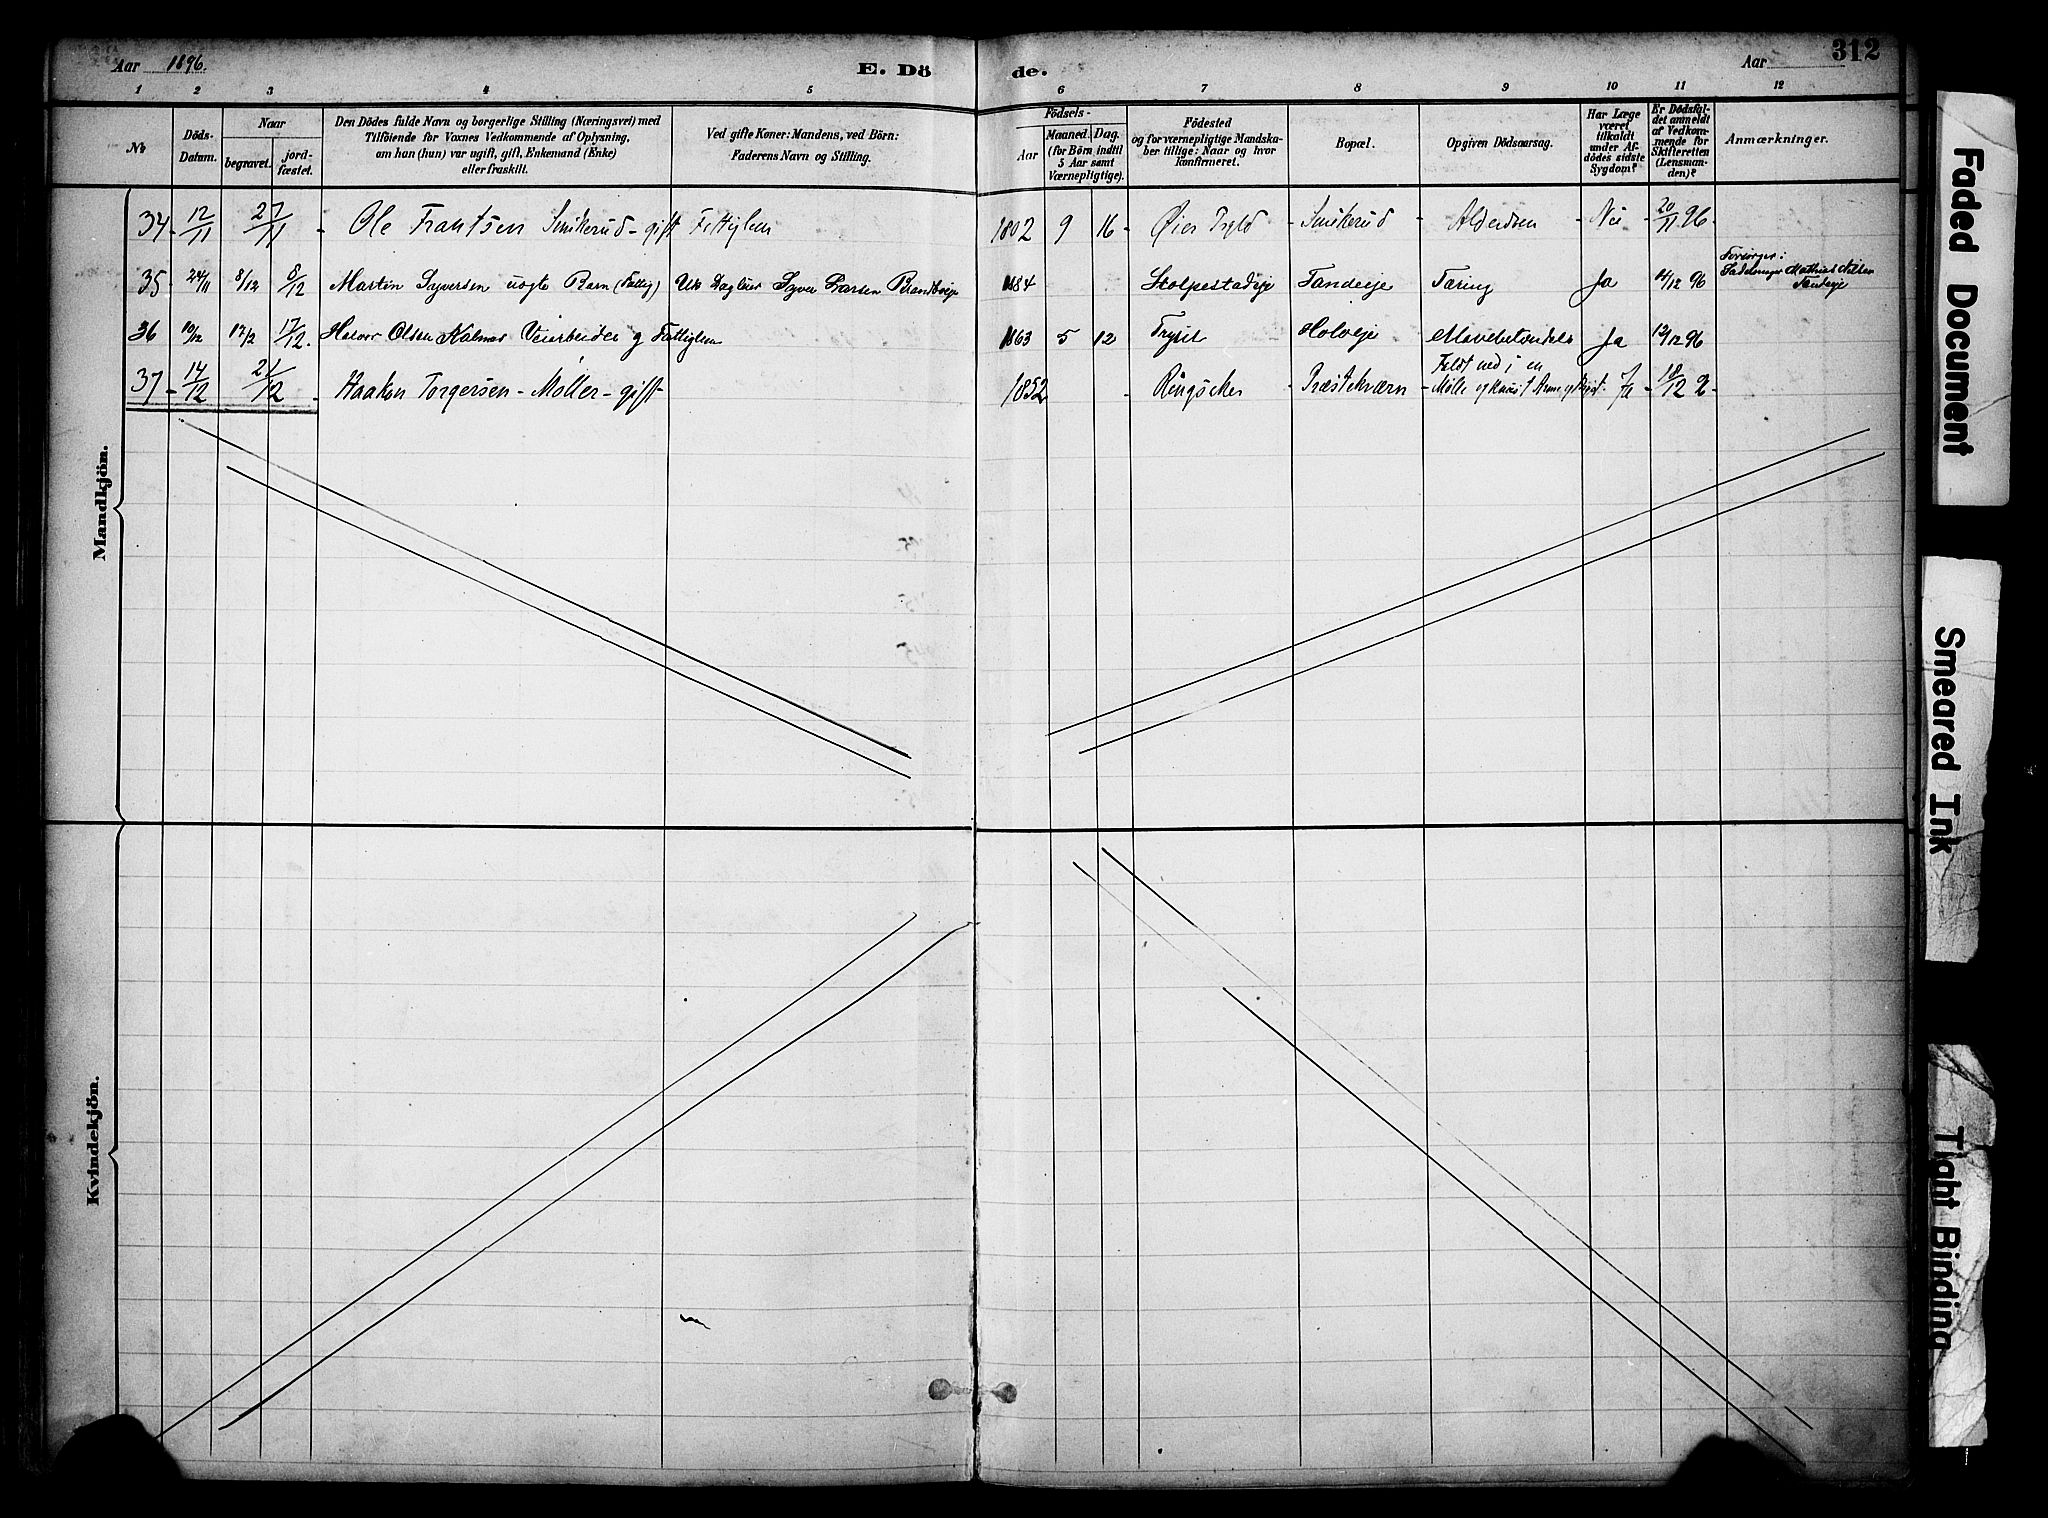 Aar 1896.
E. Dö
de.
Aar
312
1 2 3 4 5 6 7 8 9 10 11 12
No
Döds-
Datum.
Naar
begravet.
jord-
fæstet.
Den Dödes fulde Navn og borgerlige Stilling (Næringsvei) med
Tilföiende for Voxnes Vedkommende af Oplysning,
om han (hun) var ugift, gift, Enkemand (Enke)
eller fraskilt.
Ved gifte Koner: Mandens, ved Börn:
Faderens Navn og Stilling.
Födsels-
Aar
Maaned.
Dag.
(for Börn indtil
5 Aar samt
Værnepligtige).
Födested
og for værnepligtige Mandska-
ber tillige: Naar og hvor
konfirmeret.
Bopæl.
Opgiven Dödsaarsag.
Har Læge
været
tilkaldt
under Af-
dödes sidste
Sygdom?
Er Dödsfal-
det anmeldt
af Vedkom-
mende for
Skifteretten
(Lensman-
den)?
Anmærkninger.
34 - 12/11 27/11 - Ole Frantsen Smikerud - gift 1802 9 16 - Øier - Smikerud - Alderdom - Nei - 20/11 96 -
35 - 24/11 8/12 8/12 Martin Syversen Barn (Fattig) Syver Larsen 1884 Stolpestadeje Tandeeje Tæring Ja 14/12 96
Forsørger:
Mathias
Tandeeje
36 10/12 17/12 17/12. Halvor Olsen Veiarbeider og Fattiglem 1863 5 12 Trysil Holoeje Ja 12/12 96
37 - 14/12 21/12 - Haakon Torgersen - Møller - gift 1852 - Ringsaker - Præstekværn - Faldt ned i en
Mølle og Ja - 18/12
Mandkjön.
Kvindekjön.
Faded Document
Smeared Ink
Tight Binding